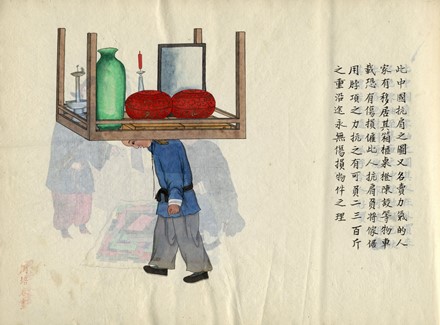 此中國抗肩之圖又名賣力氣的人
家有移居其箱櫃桌櫈陳設等物車
載恐有傷損僱此人抗肩員將傢俱
用脖項之力抗之有可負二三百斤
之重沿途永無傷損物件之理